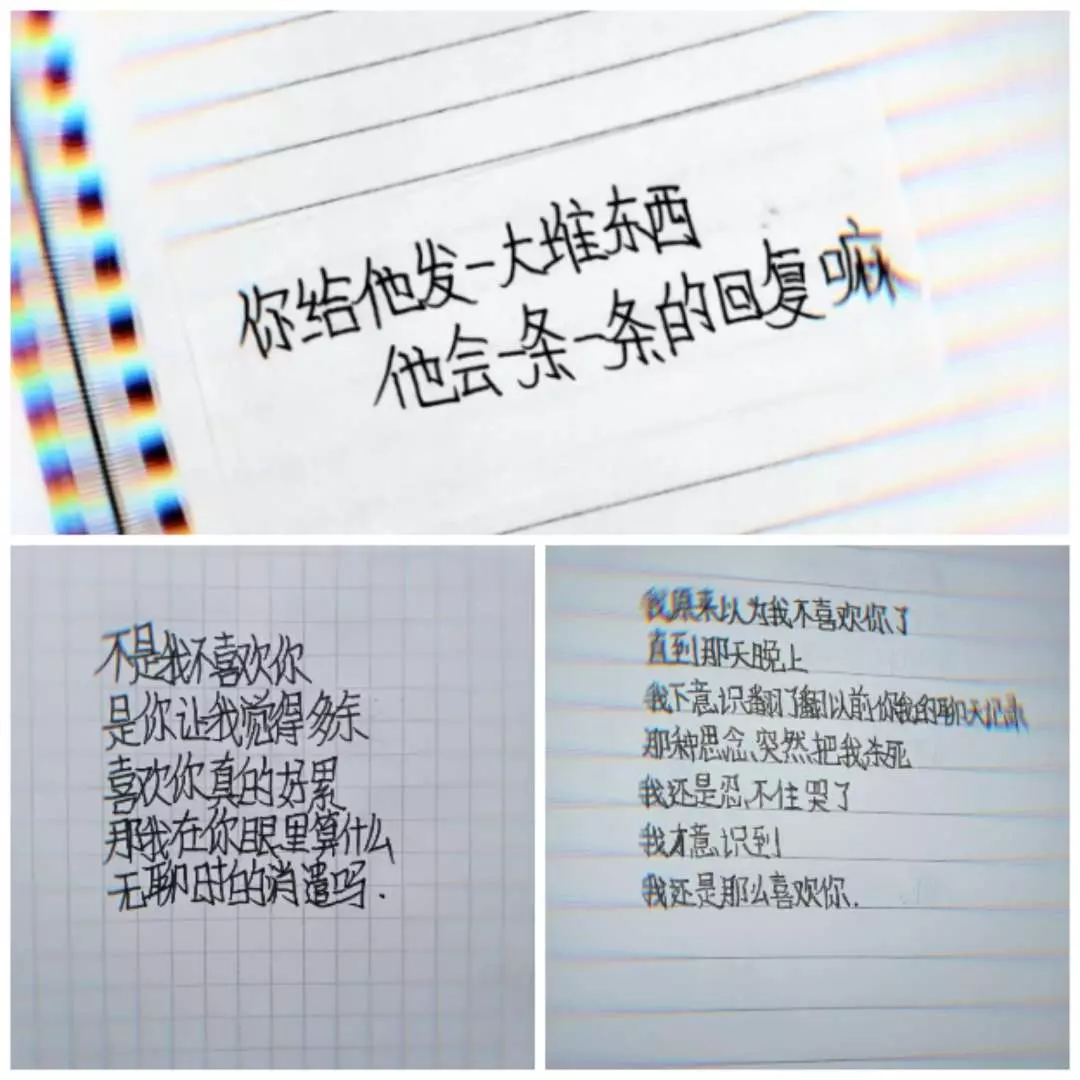 你给他发一大堆东西
他会一条一条的回复嘛
不是我不喜欢你
是你让我觉得多余
喜欢你真的好累
那我在你眼里算什么
无聊时的消遣吗.
我原来以为我不喜欢你了
直到那天晚上
我下意识翻了翻以前你我的聊天记录
那种思念、突然把我杀死
我还是忍不住哭了
我才意识到
我还是那么喜欢你.